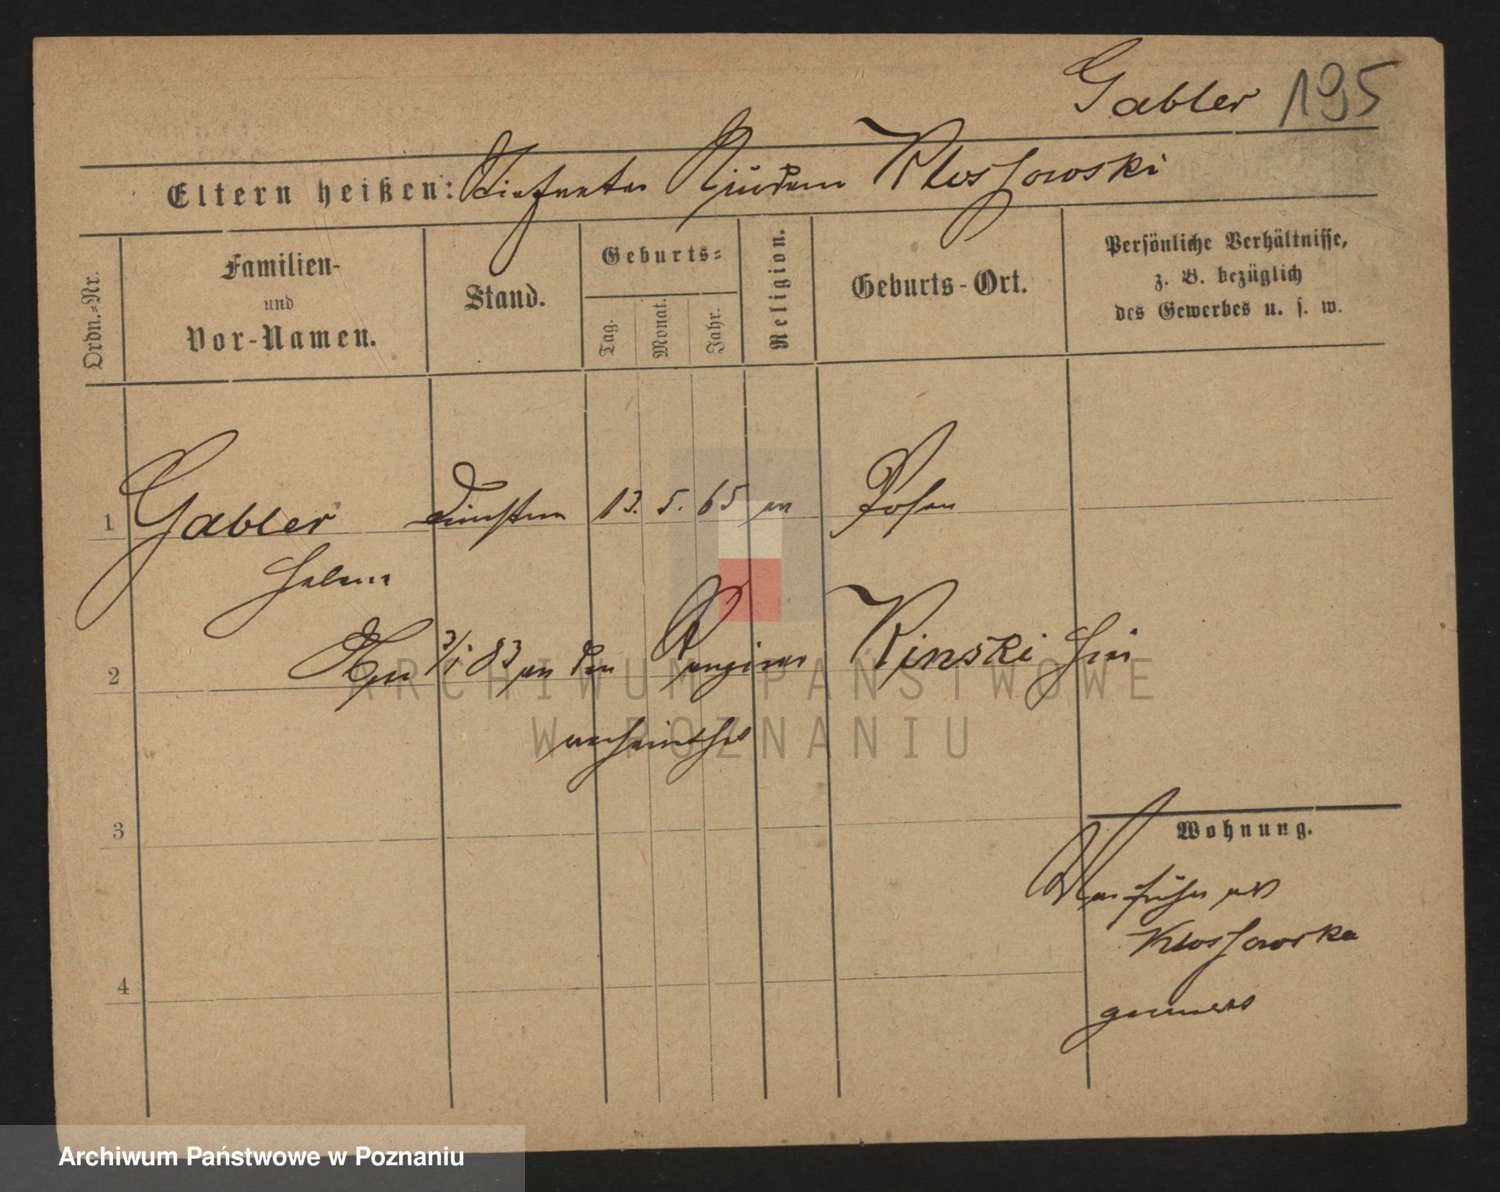 Gabler 195
Eltern heißen: Kłossowski
Ordn.-Nr.
Familien-
und
Vor-Namen.
Stand.
Geburts-
Tag.
Monat.
Jahr.
Religion.
Geburts-Ort.
Persönliche Verhältnisse,
z. B. bezüglich
des Gewerbes u. s. w.
1 Gabler 13. 5. 65 Posen
Helene
2 83 an den Kinski hier
verheirathet
3
Wohnung.
War früher als
Klossowska
gemeldet
4
ARCHIWUM PAŃSTWOWE
W POZNANIU
Archiwum Państwowe w Poznaniu